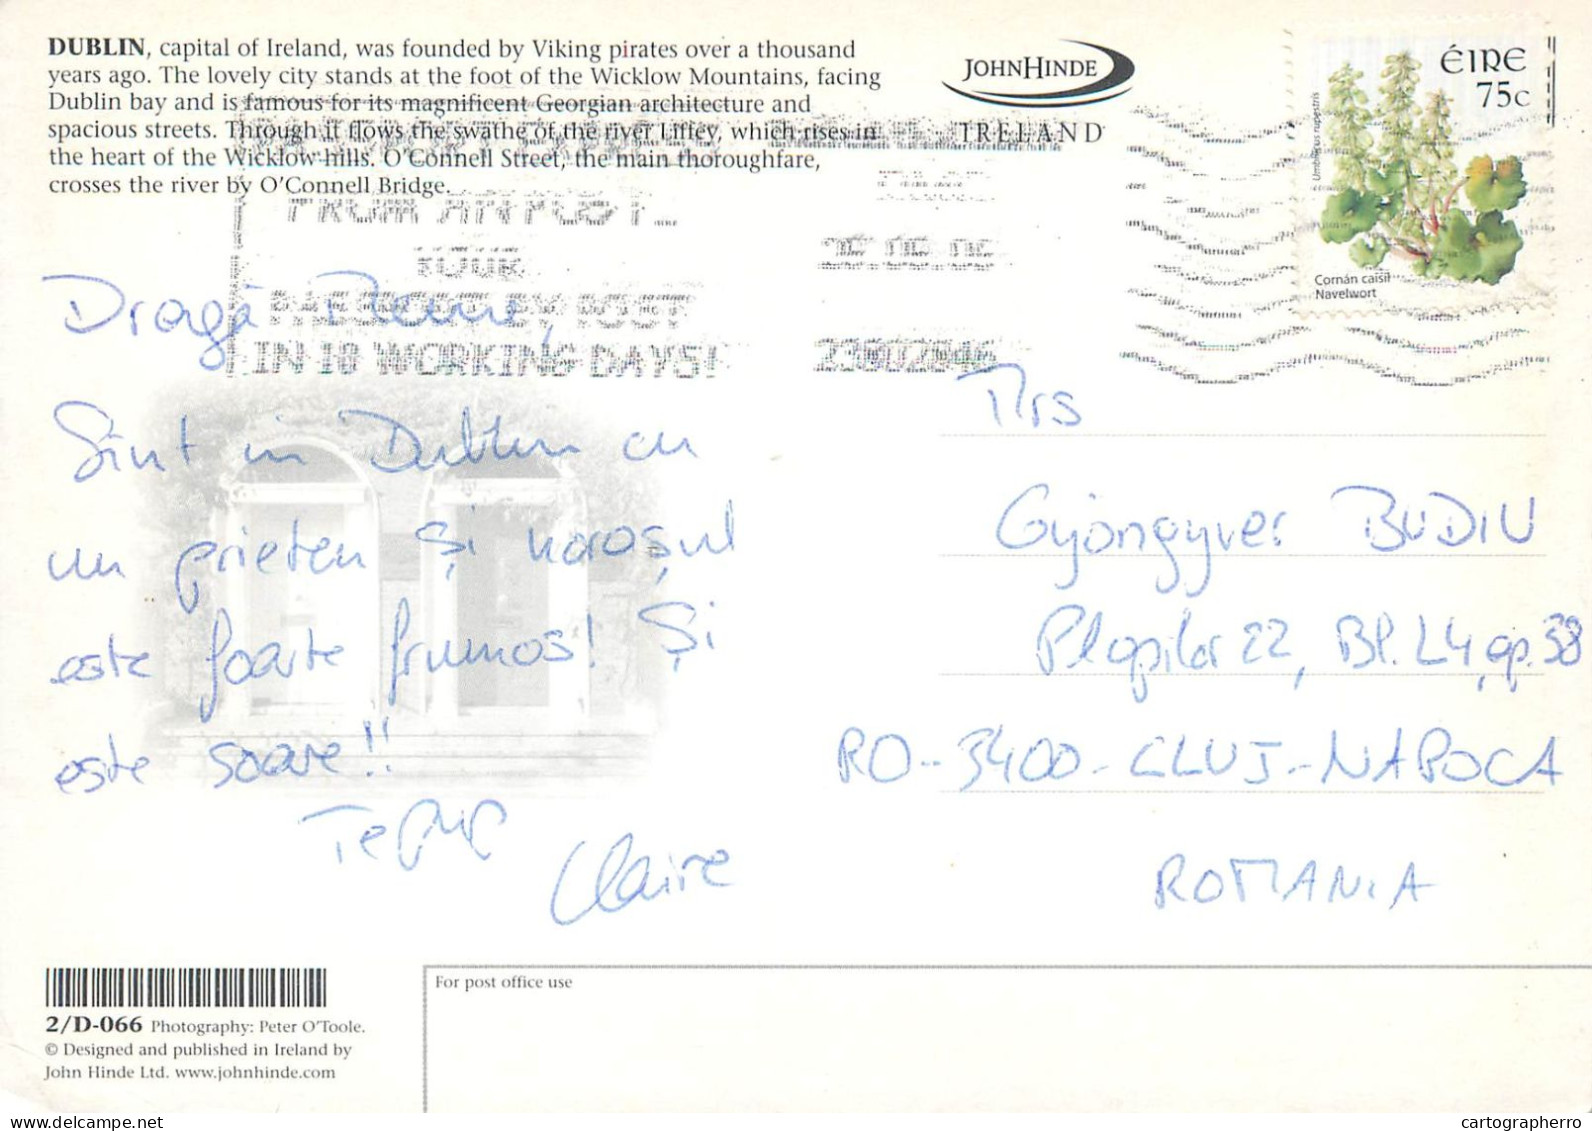 DUBLIN, capital of Ireland, was founded by Viking pirates over a thousand
years ago. The lovely city stands at the foot of the Wicklow Mountains, facing
Dublin bay and is famous for its magnificent Georgian architecture and
spacious streets. Through it flows the swathe of the river Liffey, which rises in
the heart of the Wicklow hills. O'Connell Street, the main thoroughfare,
crosses the river by O'Connell Bridge.
JOHNHINDE
IRELAND
ÉIRE
75c
Umbilicus rupestris
Cornán caisil
Navelwort
FROM AN POST
YOUR
PASSPORT BY POST
IN 10 WORKING DAYS!
23802846
Dragă
Sint in Dublin cu
un prieten și norosul
este foarte frumos! Și
este soare!!
Te pup
Claire
Mrs
Gyöngyver BUDIU
Plopilor 22, Bl. L4, ap. 38
RO-3400-CLUJ-NAPOCA
ROMANIA
2/D-066 Photography: Peter O'Toole.
© Designed and published in Ireland by
John Hinde Ltd. www.johnhinde.com
For post office use
cartographerro